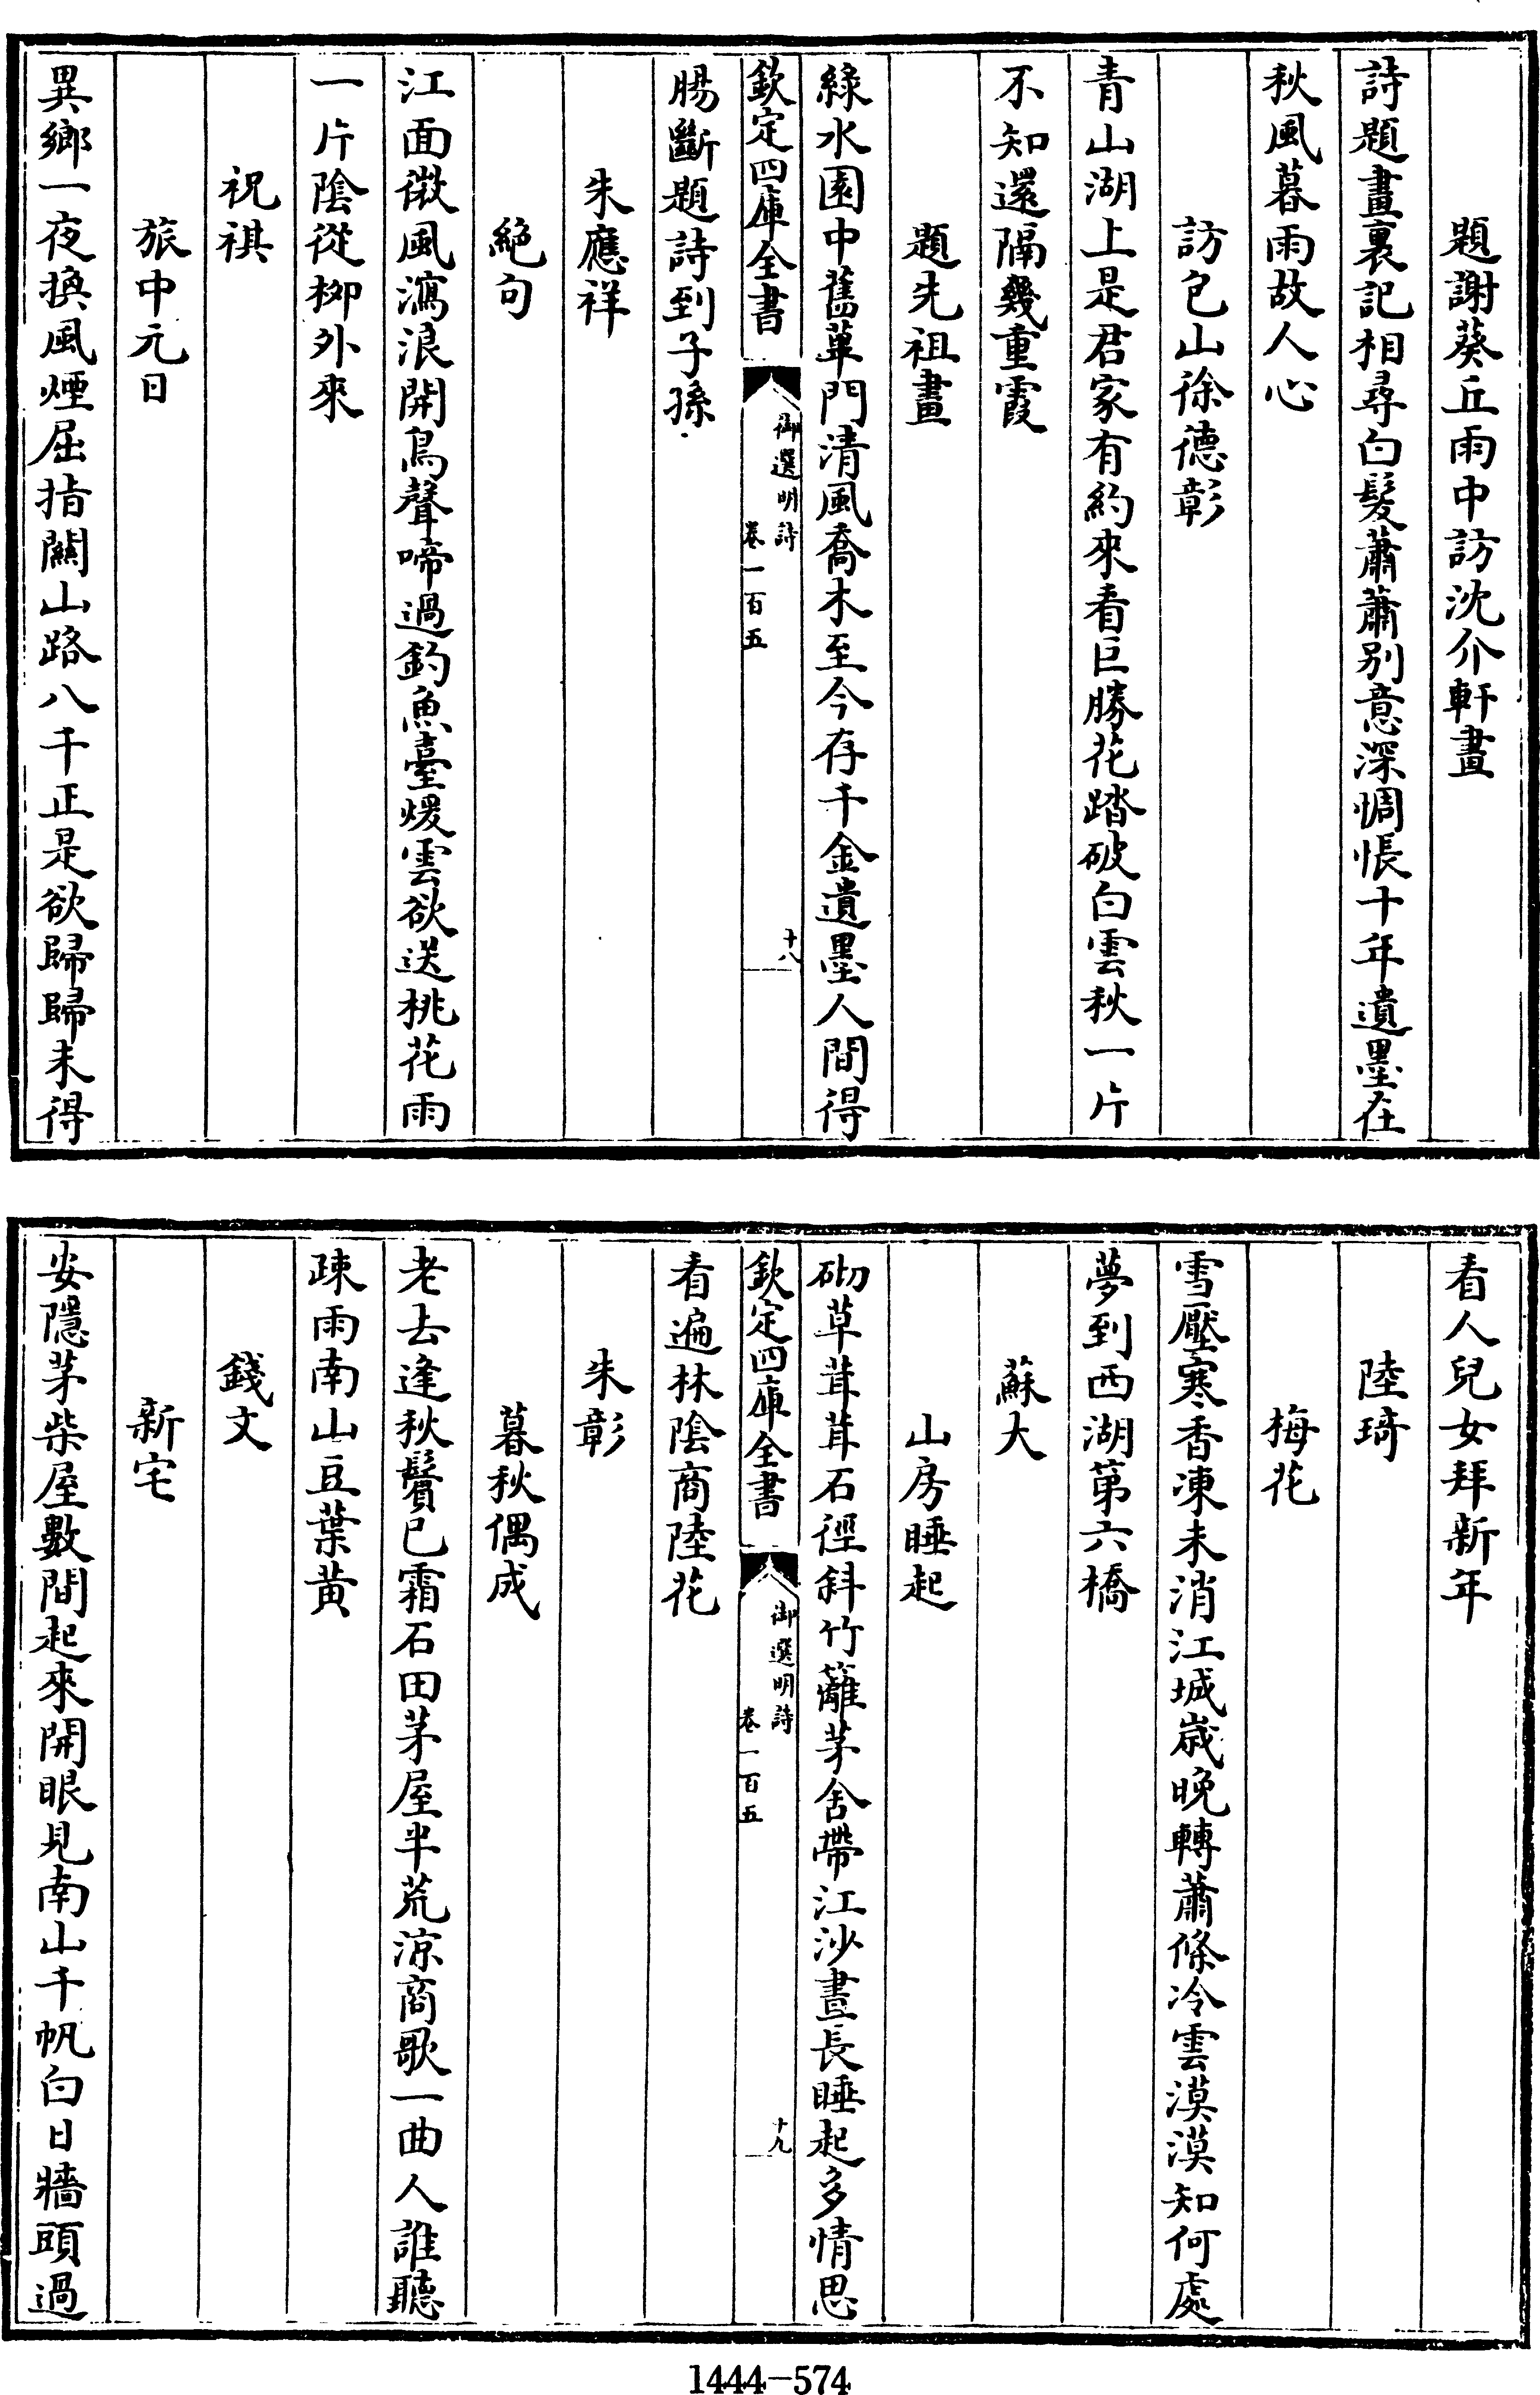 題謝葵丘雨中訪沈介軒畫
詩題畫裏記相尋白髮蕭蕭别意深惆悵十年遺墨在
秋風暮雨故人心
訪包山徐德彰
青山湖上是君家有約來看巨勝花踏破白雲秋一片
不知還隔幾重霞
題先祖畫
綠水園中舊蓽門清風喬木至今存千金遺墨人間得
欽定四庫全書
御選明詩
卷一百五
十八
腸斷題詩到子孫
朱應祥
絶句
江面微風瀉浪開鳥聲啼過釣魚臺煖雲欲送桃花雨
一片陰從栁外來
祝祺
旅中元日
異鄉一夜換風煙屈指關山路八千正是欲歸歸未得
看人兒女拜新年
陸琦
梅花
雪壓寒香凍未消江城歲晚轉蕭條冷雲漠漠知何處
夢到西湖第六橋
蘇大
山房睡起
砌草茸茸石徑斜竹籬茅舍帶江沙晝長睡起多情思
欽定四庫全書
御選明詩
卷一百五
十九
看遍林陰商陸花
朱彰
暮秋偶成
老去逢秋鬢已霜石田茅屋半荒涼商歌一曲人誰聽
疎雨南山豆葉黄
錢文
新宅
安隱茅柴屋數間起來開眼見南山千帆白日牆頭過
1444-574